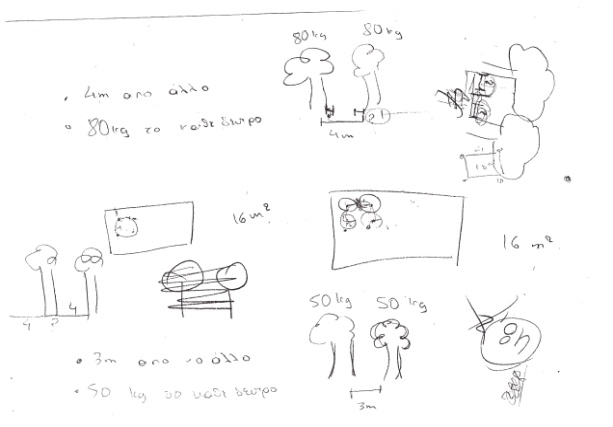 80kg 80kg
• 4m απο άλλο
• 80kg το καθε δεντρο
4m
16 m²
16 m²
4 4
50kg 50kg
• 3m απο το άλλο
• 50 kg το καθε δεντρο
3m